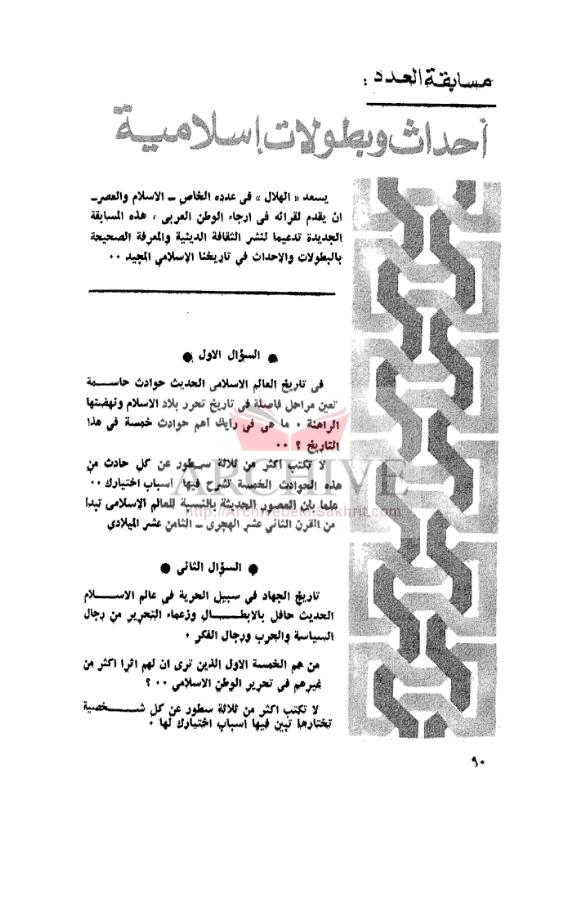 مسابقة العدد :
أحداث وبطولات إسلامية
يسعد « الهلال » فى عدده الخاص ـ الاسلام والعصرـ
ان يقدم لقرائه فى ارجاء الوطن العربى ، هذه المسابقة
الجديدة تدعيما لنشر الثقافة الدينية والمعرفة الصحيحة
بالبطولات والاحداث في تاريخنا الإسلامي المجيد ٠٠
● السؤال الاول ●
فى تاريخ العالم الاسلامى الحديث حوادث حاسمة
تعين مراحل فاصلة فى تاريخ تحرر بلاد الاسلام ونهضتها
الراهنة ٠ ما هى فى رايك أهم حوادث خمسة فى هذا
التاريخ ؟ ٠٠
لا تكتب اكثر من ثلاثة سطور عن كل حادث من
هذه الحوادث الخمسة تشرح فيها اسباب اختيارك ٠٠
علما بان العصور الحديثة بالنسبة للعالم الإسلامى تبدا
من القرن الثانى عشر الهجرى ـ الثامن عشر الميلادي
ARCHIVE
http://Archivebeta.Sakhrit.com
● السؤال الثانى ●
تاريخ الجهاد فى سبيل الحرية فى عالم الاسلام
الحديث حافل بالابطال وزعماء التحرير من رجال
السياسة والحرب ورجال الفكر ٠
من هم الخمسة الاول الذين ترى ان لهم اثرا اكثر من
غيرهم فى تحرير الوطن الاسلامى ٠٠ ؟
لا تكتب اكثر من ثلاثة سطور عن كل شخصية
تختارها تبين فيها اسباب اختيارك لها ٠
٩٠